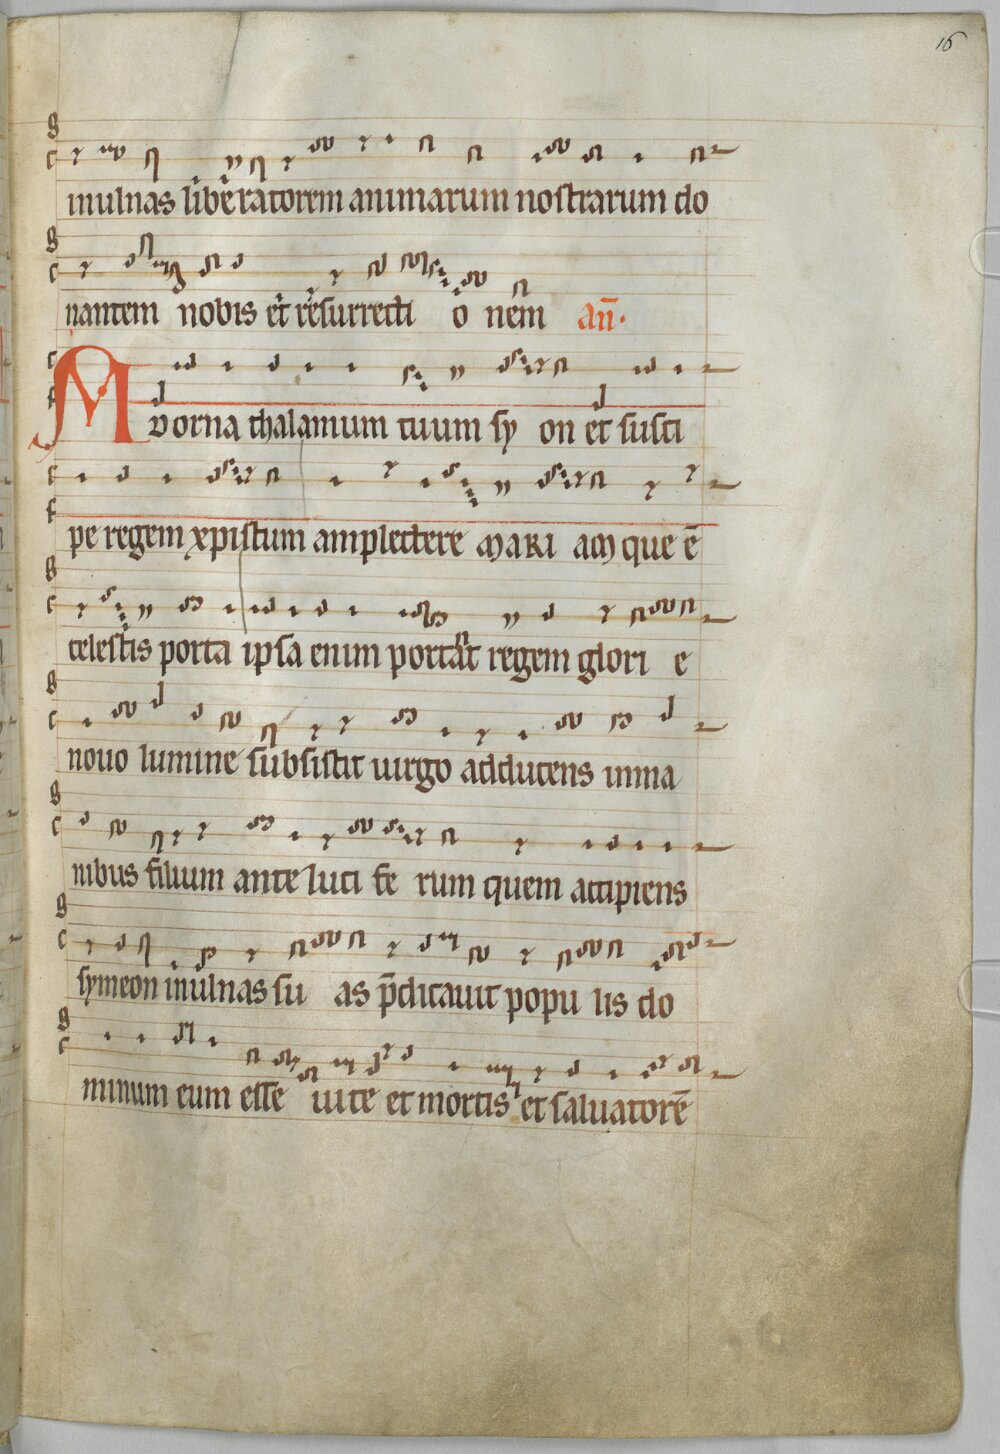 16
inulnas liberatorem animarum nostrarum do
nantem nobis et resurrecti o nem añ.
Adorna thalamum tuum sy on et susci
pe regem xpistum amplectere MARI AM que ē
celestis porta ipsa enim portat regem glori e
nouo lumine subsistit uirgo adducens inma
nibus filium ante luci fe rum quem accipiens
symeon inulnas su as p̄dicauit popu lis do
minum eum esse uite et mortis et saluatorē